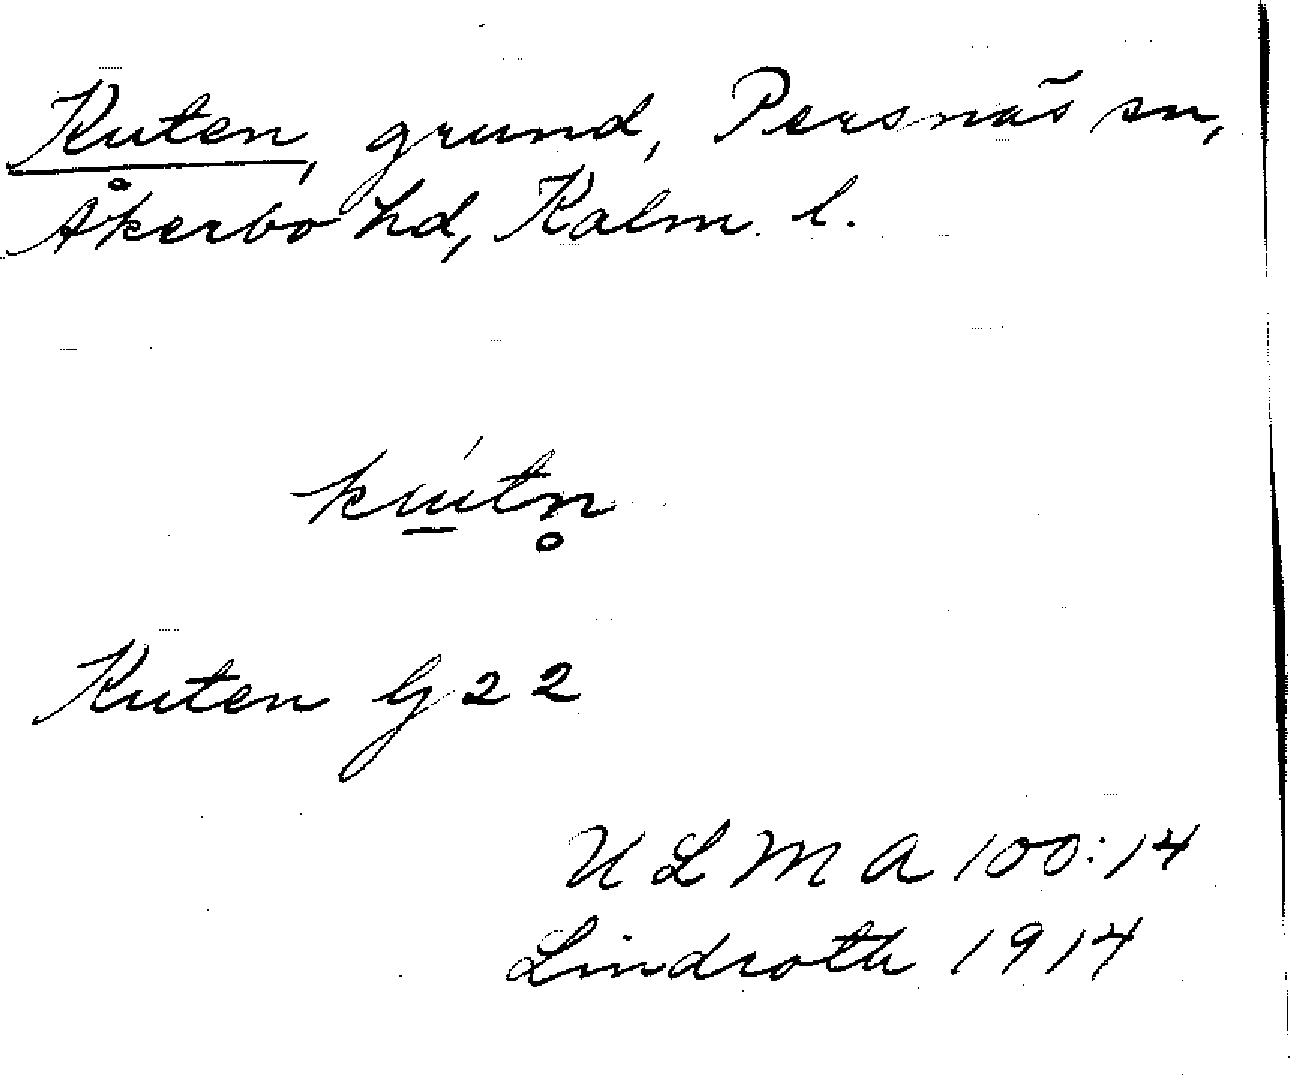 Kuten, grund, Persnäs sn,
Åkerbo hd, Kalm. l.
kúu̲tn̥
Kuten G 22
ULMA 100:14
Lindroth 1914